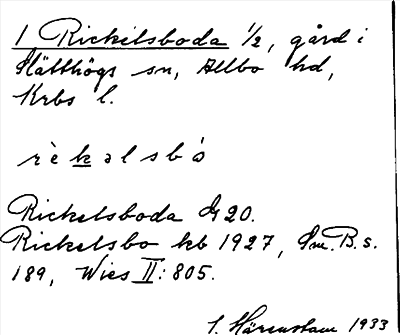 1 Rickelsboda 1/2, gård i
Slätthögs sn, Allbo hd,
Krbs l.
rèkalsbó
Rickelsboda Gr 20.
Rickelsbo kb 1927, Sm. B. s.
189, Wies II: 805.
S. Härenstam 1933